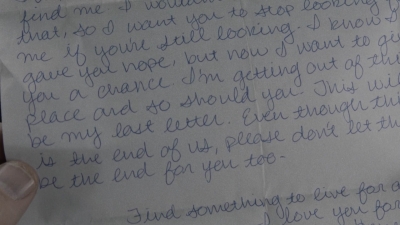 find me I would
that, so I want you to stop looking
me if you're still looking. I know I
gave you hope, but now I want to gi
you a chance. I'm getting out of thi
place and so should you. This wil
be my last letter. Even though thi
is the end of us, please don't let th
be the end for you too.
Find something to live for a
I love you for